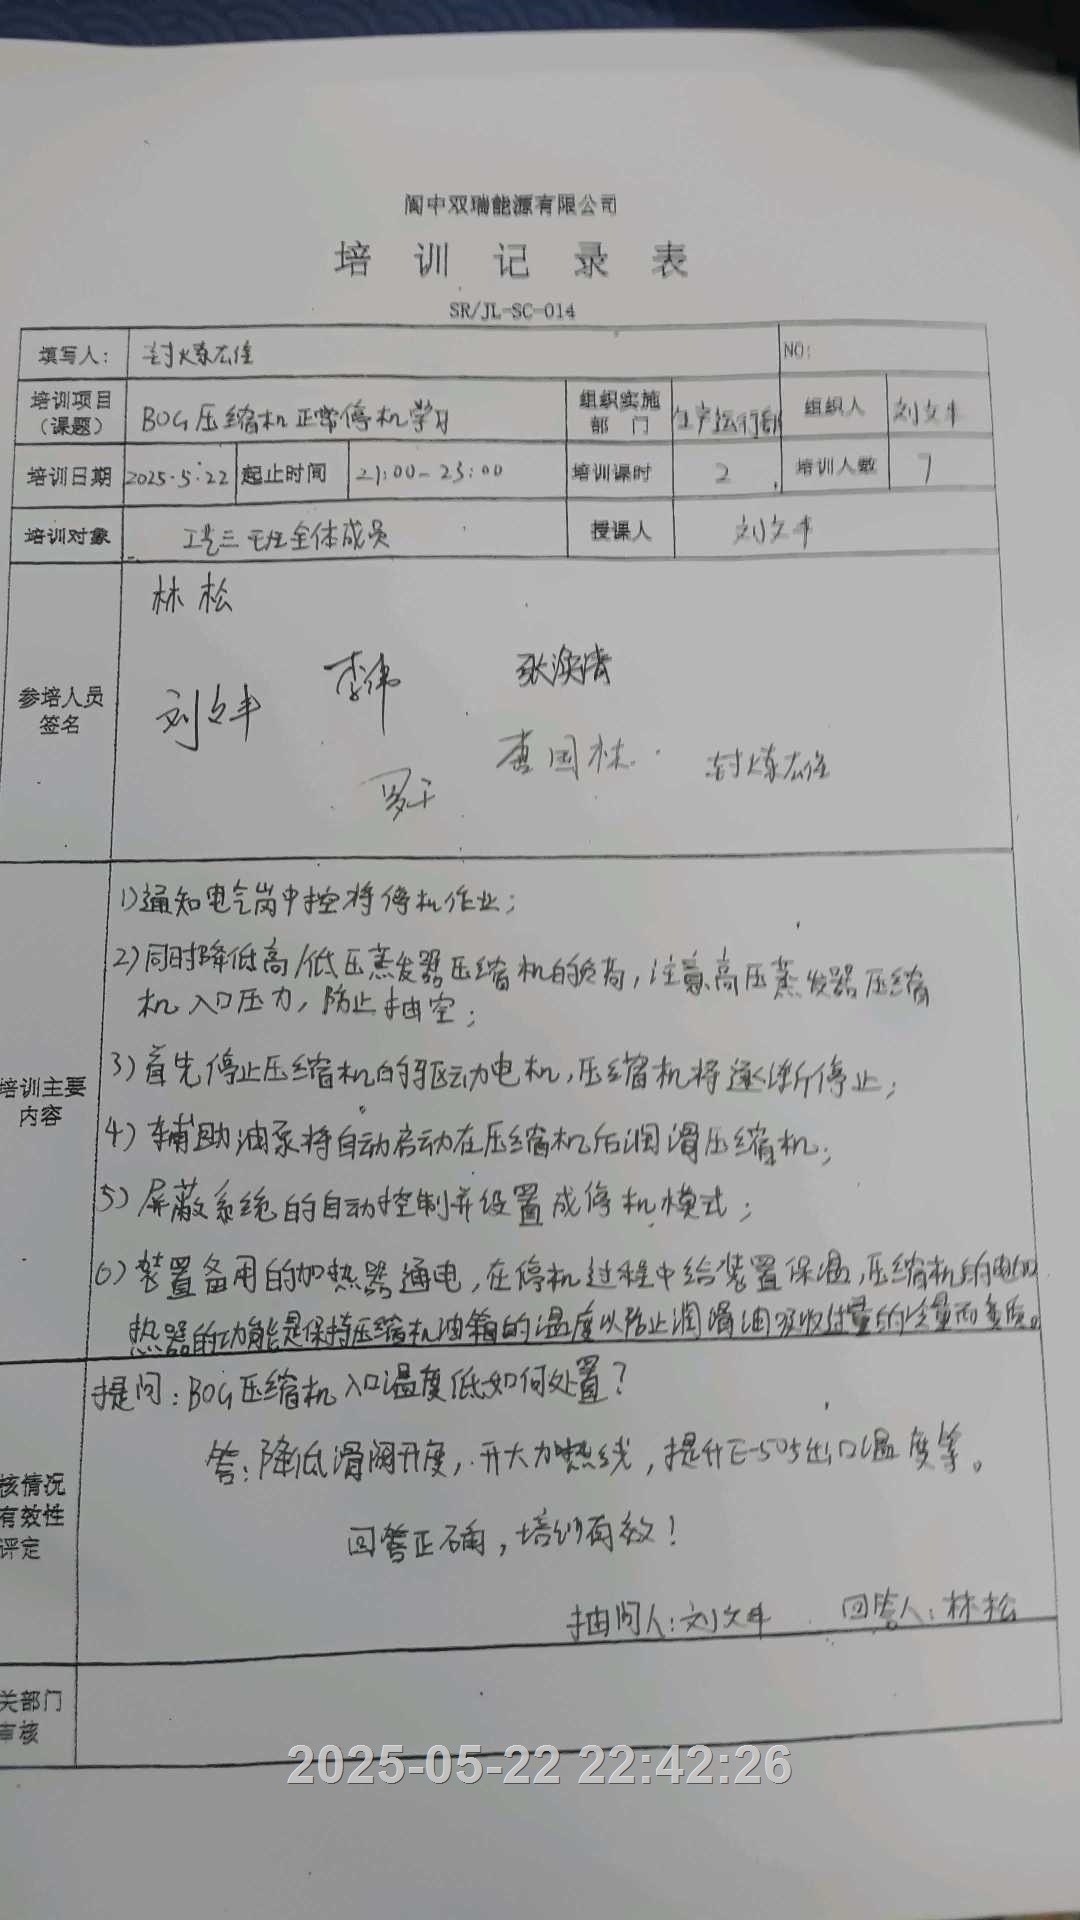 阆中双瑞能源有限公司
培训记录表
SR/JL-SC-014
填写人： 封炼宏佳 NO:
培训项目（课题） BOG压缩机正常停机学习 组织实施部门 生产运行部 组织人 刘文丰
培训日期 2025.5.22 起止时间 21:00-23:00 培训课时 2 培训人数 7
培训对象 工艺三班全体成员 授课人 刘文丰
参培人员签名
林松
李伟 张涣清
刘文丰
唐国林 封炼宏佳
罗干
培训主要内容
1)通知电气岗中控将停机作业；
2)同时降低高/低压蒸发器压缩机的负荷，注意高压蒸发器压缩
机入口压力，防止抽空；
3)首先停止压缩机的驱动电机，压缩机将逐渐停止；
4)辅助油泵将自动启动在压缩机后润滑压缩机；
5)屏蔽系统的自动控制并设置成停机模式；
6)装置备用的加热器通电，在停机过程中给装置保温，压缩机的电加
热器的功能是保持压缩机油箱的温度以防止润滑油吸收过量的冷量而变质。
核情况
有效性
评定
提问：BOG压缩机入口温度低如何处置？
答：降低滑阀开度，开大加热线，提升E-505出口温度等。
回答正确，培训有效！
抽问人：刘文丰 回答人：林松
关部门
审核
2025-05-22 22:42:26